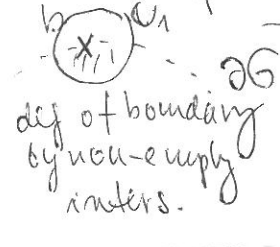 b U₁
x
∂G
def of boundary
by non-empty
inters.